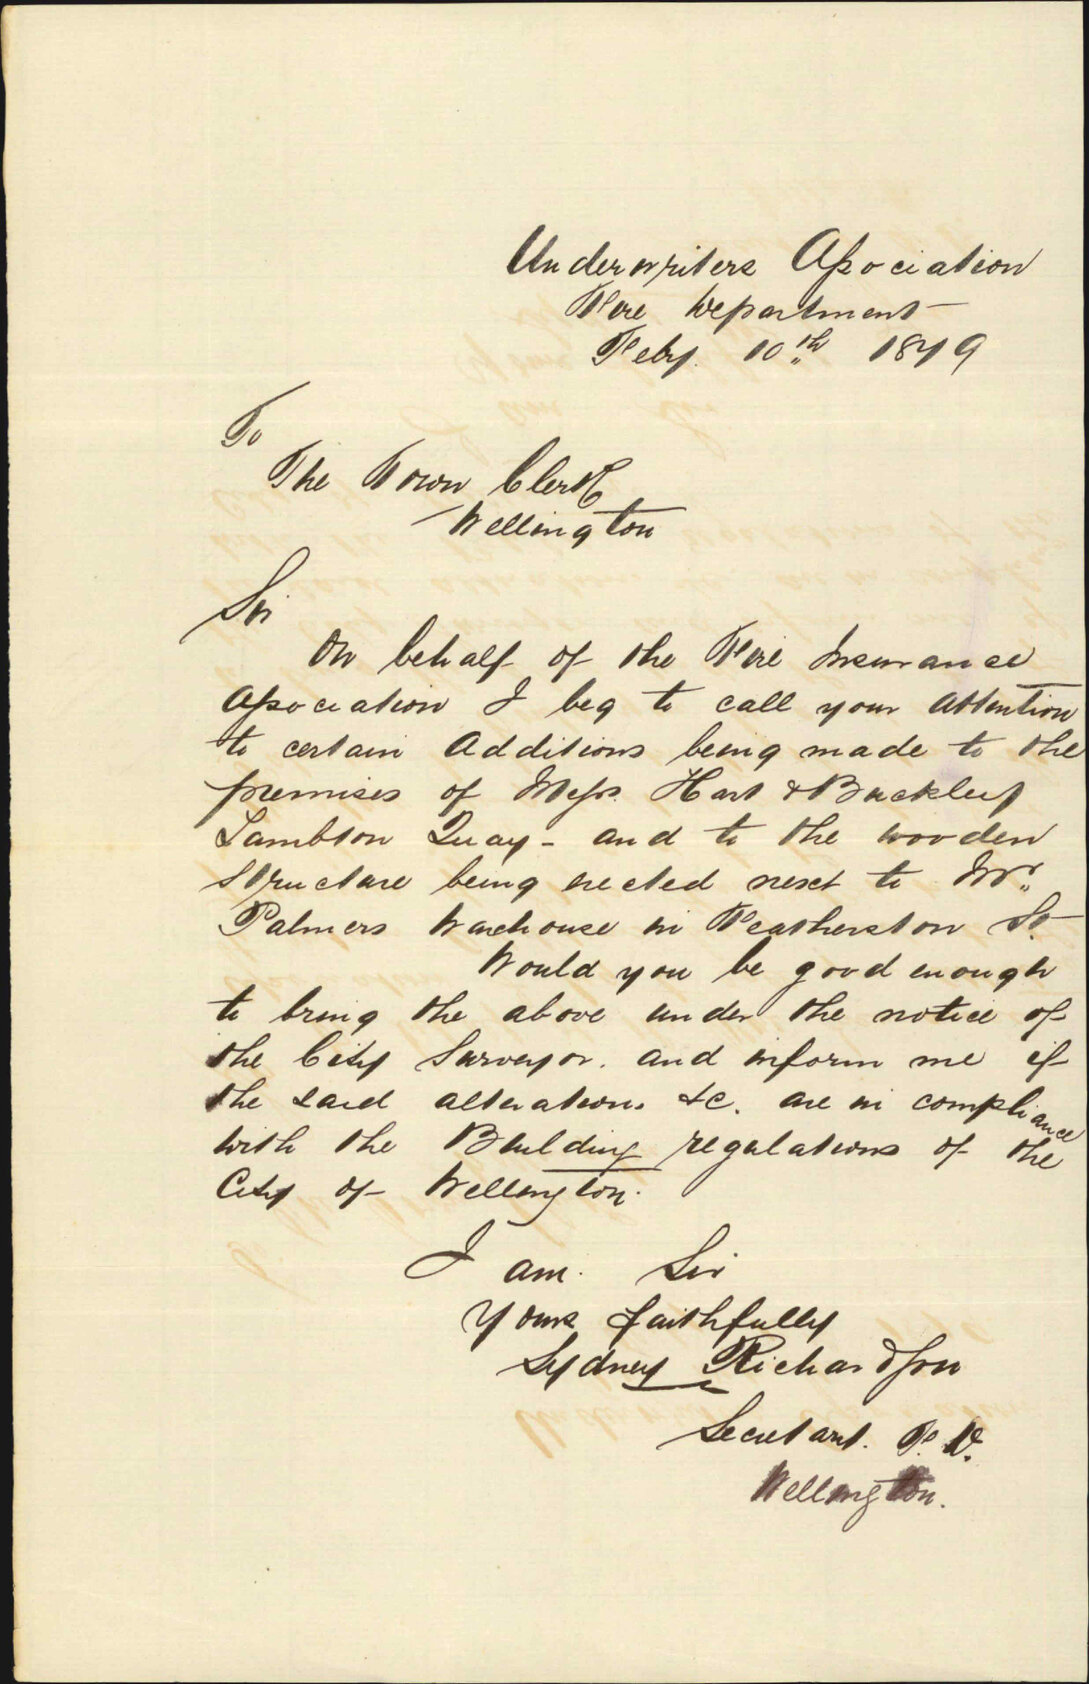 Underwriters Association
Fire Department
Feby. 10th 1879
To
The Town Clerk
Wellington
Sir
On behalf of the Fire Insurance
Association I beg to call your Attention
to certain Additions being made to the
premises of Messrs. Hart & Buckley
Lambton Quay - and to the wooden
structure being erected next to Mr.
Palmers Warehouse in Featherston St.
Would you be good enough
to bring the above under the notice of
the City Surveyor. and inform me if
the said alterations &c. are in compliance
with the Building regulations of the
City of Wellington.
I am. Sir
Yours faithfully
Sydney Richardson
Secretary. F. D.
Wellington.